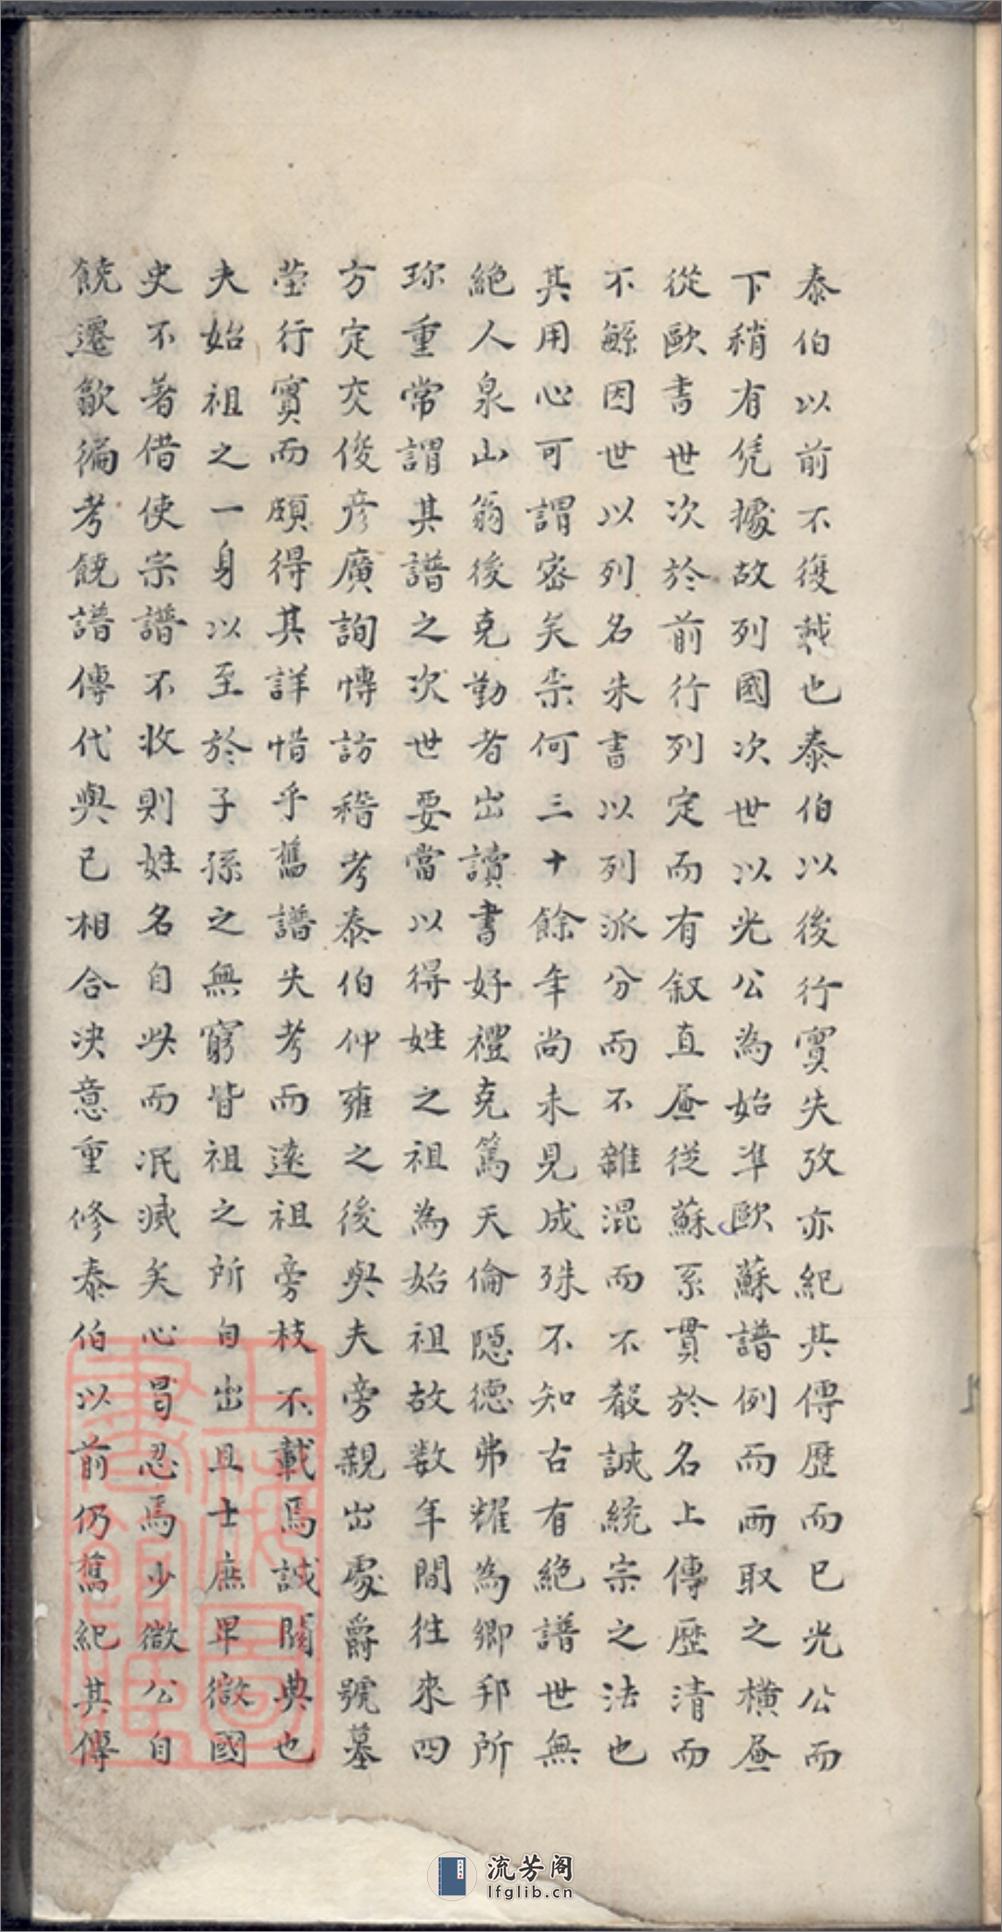 泰伯以前不復載也泰伯以後行實失攷亦紀其傳歷而已光公而
下稍有凭據故列國次世以光公為始準歐蘇譜例而兩取之橫
從歐書世次於前行列定而有叙直從蘇系貫於名上傳歷清而
不繇因世以列名朱書以列派分而不雜混而不殽誠統宗之法也
其用心可謂密矣柰何三十餘年尚未見成殊不知古有絶譜世無
絶人泉山翁後克勤者出讀書好禮克篤天倫隠德弗耀為鄉邦所
珎重常謂其譜之次世要當以得姓之祖為始祖故数年間徃來四
方定交俊彦廣詢愽訪稽考泰伯仲雍之後與夫旁親出處爵號墓
塋行實而頗得其詳惜乎舊譜失考而遠祖旁枝不載焉誠闕典也
夫始祖之一身以至於子孫之無窮皆祖之所自出且士庶卑微國
史不著借使宗譜不收則姓名自此而泯滅矣心胃忍焉少微公自
饒遷歙徧考饒譜傳代與已相合決意重修泰伯以前仍舊紀其傳
上海圖書館藏
流芳阁
lfglib.cn